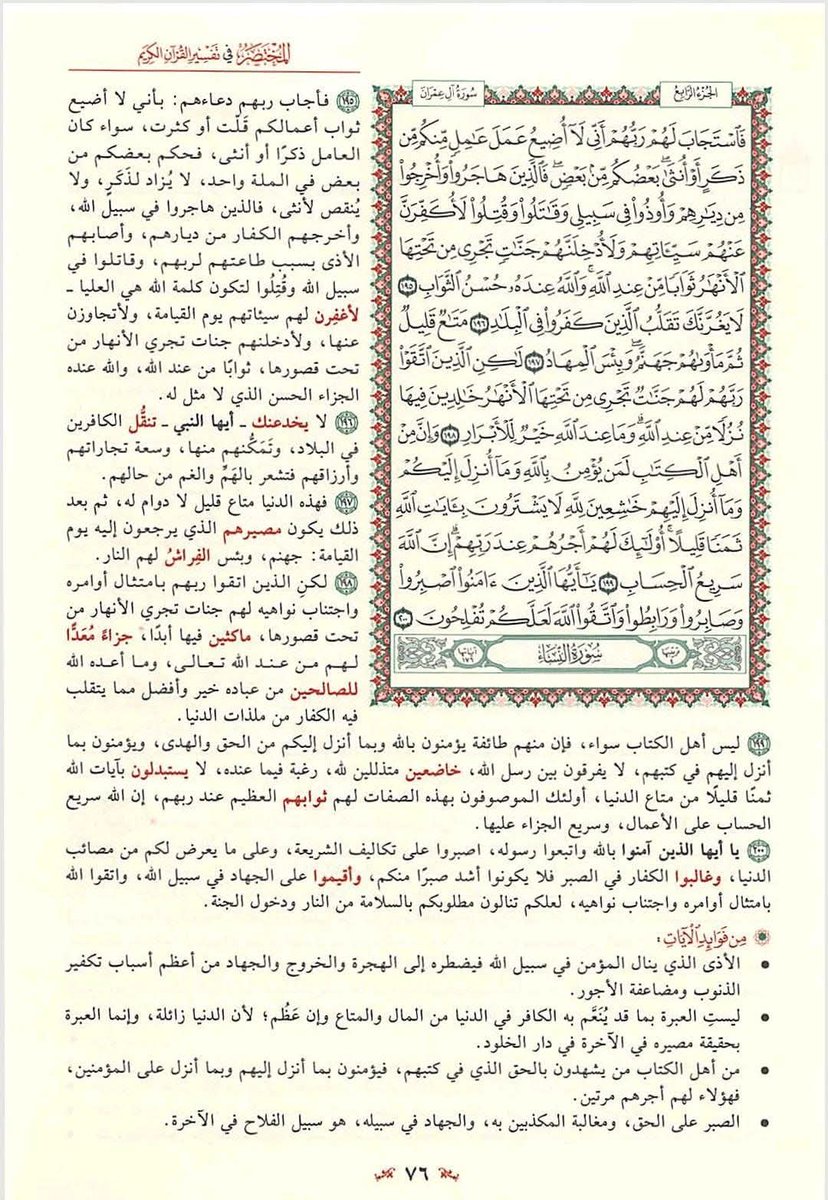 المختصر في تفسير القرآن الكريم
الجزء الرابع
سورة آل عمران
فَٱسْتَجَابَ لَهُمْ رَبُّهُمْ أَنِّي لَآ أُضِيعُ عَمَلَ عَٰمِلٖ مِّنكُم مِّن
ذَكَرٍ أَوْ أُنثَىٰۖ بَعْضُكُم مِّنۢ بَعْضٖۖ فَٱلَّذِينَ هَاجَرُواْ وَأُخْرِجُواْ
مِن دِيَٰرِهِمْ وَأُوذُواْ فِي سَبِيلِي وَقَٰتَلُواْ وَقُتِلُواْ لَأُكَفِّرَنَّ
عَنْهُمْ سَيِّـَٔاتِهِمْ وَلَأُدْخِلَنَّهُمْ جَنَّٰتٖ تَجْرِي مِن تَحْتِهَا
ٱلْأَنْهَٰرُ ثَوَابٗا مِّنْ عِندِ ٱللَّهِۚ وَٱللَّهُ عِندَهُۥ حُسْنُ ٱلثَّوَابِ ١٩٥
لَا يَغُرَّنَّكَ تَقَلُّبُ ٱلَّذِينَ كَفَرُواْ فِي ٱلْبِلَٰدِ ١٩٦ مَتَٰعٞ قَلِيلٞ
ثُمَّ مَأْوَىٰهُمْ جَهَنَّمُۖ وَبِئْسَ ٱلْمِهَادُ ١٩٧ لَٰكِنِ ٱلَّذِينَ ٱتَّقَوْاْ
رَبَّهُمْ لَهُمْ جَنَّٰتٞ تَجْرِي مِن تَحْتِهَا ٱلْأَنْهَٰرُ خَٰلِدِينَ فِيهَا
نُزُلٗا مِّنْ عِندِ ٱللَّهِۗ وَمَا عِندَ ٱللَّهِ خَيْرٞ لِّلْأَبْرَارِ ١٩٨ وَإِنَّ مِنْ
أَهْلِ ٱلْكِتَٰبِ لَمَن يُؤْمِنُ بِٱللَّهِ وَمَآ أُنزِلَ إِلَيْكُمْ
وَمَآ أُنزِلَ إِلَيْهِمْ خَٰشِعِينَ لِلَّهِ لَا يَشْتَرُونَ بِـَٔايَٰتِ ٱللَّهِ
ثَمَنٗا قَلِيلًاۚ أُوْلَٰٓئِكَ لَهُمْ أَجْرُهُمْ عِندَ رَبِّهِمْۗ إِنَّ ٱللَّهَ
سَرِيعُ ٱلْحِسَابِ ١٩٩ يَٰٓأَيُّهَا ٱلَّذِينَ ءَامَنُواْ ٱصْبِرُواْ
وَصَابِرُواْ وَرَابِطُواْ وَٱتَّقُواْ ٱللَّهَ لَعَلَّكُمْ تُفْلِحُونَ ٢٠٠
ترتيبها ٤
سورة النساء
آياتها ١٧٦
١٩٥ فأجاب ربهم دعاءهم: بأني لا أضيع
ثواب أعمالكم قَلّت أو كثرت، سواء كان
العامل ذكرًا أو أنثى، فحكم بعضكم من
بعض في الملة واحد، لا يُزاد لذَكَرٍ، ولا
يُنقص لأنثى، فالذين هاجروا في سبيل الله،
وأخرجهم الكفار من ديارهم، وأصابهم
الأذى بسبب طاعتهم لربهم، وقاتلوا في
سبيل الله وقُتِلُوا لتكون كلمة الله هي العليا ـ
لأغفِرن لهم سيئاتهم يوم القيامة، ولأتجاوزن
عنها، ولأدخلنهم جنات تجري الأنهار من
تحت قصورها، ثوابًا من عند الله، والله عنده
الجزاء الحسن الذي لا مثل له.
١٩٦ لا يخدعنك ـ أيها النبي ـ تنقُّل الكافرين
في البلاد، وتَمَكُّنهم منها، وسعة تجاراتهم
وأرزاقهم فتشعر بالهَمِّ والغم من حالهم.
١٩٧ فهذه الدنيا متاع قليل لا دوام له، ثم بعد
ذلك يكون مصيرهم الذي يرجعون إليه يوم
القيامة: جهنم، وبئس الفِراشُ لهم النار.
١٩٨ لكنِ الذين اتقوا ربهم بامتثال أوامره
واجتناب نواهيه لهم جنات تجري الأنهار من
تحت قصورها، ماكثين فيها أبدًا، جزاءً مُعَدًّا
لهم من عند الله تعالى، وما أعده الله
للصالحين من عباده خير وأفضل مما يتقلب
فيه الكفار من ملذات الدنيا.
١٩٩ ليس أهل الكتاب سواء، فإن منهم طائفة يؤمنون بالله وبما أنزل إليكم من الحق والهدى، ويؤمنون بما
أنزل إليهم في كتبهم، لا يفرقون بين رسل الله، خاضعين متذللين لله، رغبة فيما عنده، لا يستبدلون بآيات الله
ثمنًا قليلًا من متاع الدنيا، أولئك الموصوفون بهذه الصفات لهم ثوابهم العظيم عند ربهم، إن الله سريع
الحساب على الأعمال، وسريع الجزاء عليها.
٢٠٠ يا أيها الذين آمنوا بالله واتبعوا رسوله، اصبروا على تكاليف الشريعة، وعلى ما يعرض لكم من مصائب
الدنيا، وغالبوا الكفار في الصبر فلا يكونوا أشد صبرًا منكم، وأقيموا على الجهاد في سبيل الله، واتقوا الله
بامتثال أوامره واجتناب نواهيه، لعلكم تنالون مطلوبكم بالسلامة من النار ودخول الجنة.
من فوائد الآيات:
• الأذى الذي ينال المؤمن في سبيل الله فيضطره إلى الهجرة والخروج والجهاد من أعظم أسباب تكفير
الذنوب ومضاعفة الأجور.
• ليستِ العبرة بما قد يُنَعَّم به الكافر في الدنيا من المال والمتاع وإن عَظُم؛ لأن الدنيا زائلة، وإنما العبرة
بحقيقة مصيره في الآخرة في دار الخلود.
• من أهل الكتاب من يشهدون بالحق الذي في كتبهم، فيؤمنون بما أنزل إليهم وبما أنزل على المؤمنين،
فهؤلاء لهم أجرهم مرتين.
• الصبر على الحق، ومغالبة المكذبين به، والجهاد في سبيله، هو سبيل الفلاح في الآخرة.
٧٦